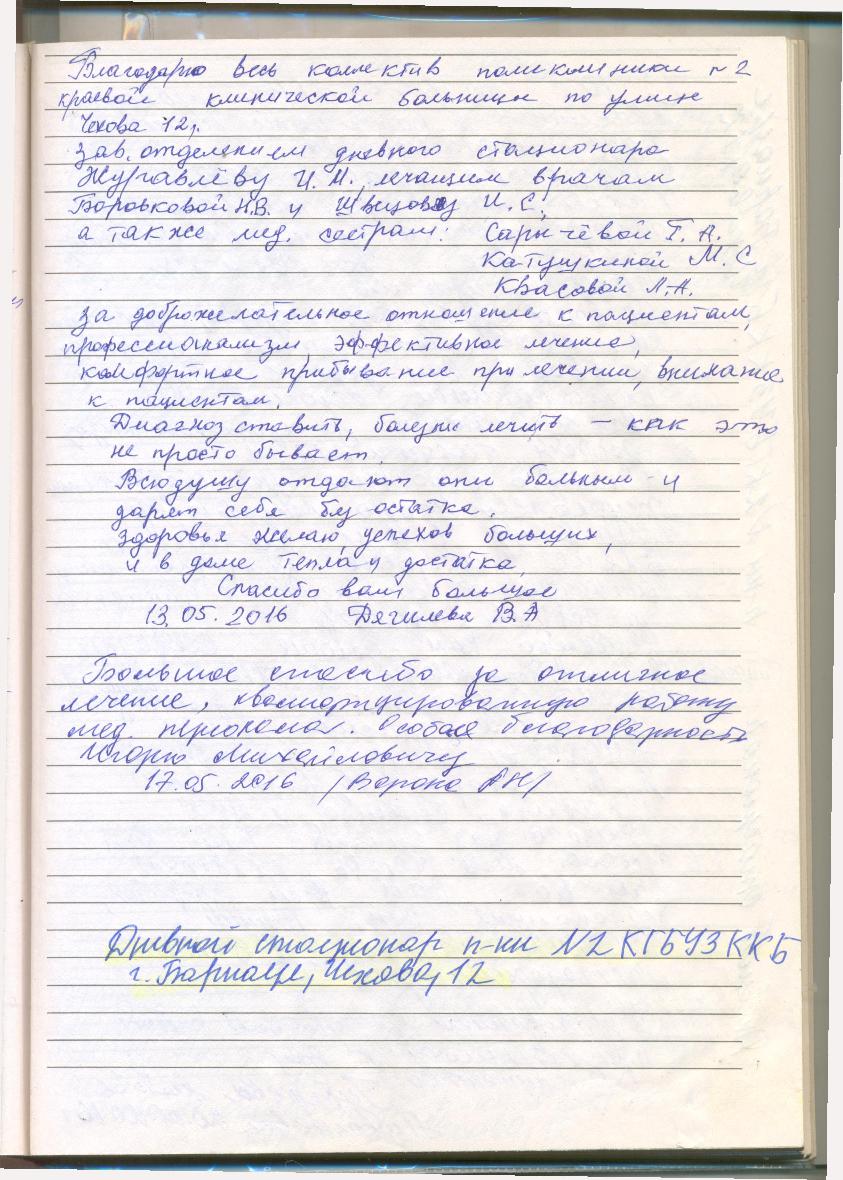 Благодарю весь коллектив поликлиники №2
краевой клинической больницы по улице
Чехова 12,
зав. отделением дневного стационара
Журавлёву И. М., лечащим врачам
Боровковой Н.В. и Швецовой И. С.,
а также мед. сестрам: Сарычёвой Г. А.
Катушкиной М. С
Квасовой Л.А.
за доброжелательное отношение к пациентам,
профессионализм, эффективное лечение,
комфортное прибывание при лечении, внимание
к пациентам.
Диагноз ставить, болезни лечить – как это
не просто бывает.
Всю душу отдают они больным и
дарят себя без остатка.
Здоровья желаю, успехов больших,
и в доме тепла и достатка,
Спасибо вам большое
13.05.2016 Дягилева В.А
Большое спасибо за отличное
лечение, квалифицированную работу
мед. персонала. Особая благодарность
Игорю Михайловичу
17.05.2016 /Ворона АН/
Дневной стационар п-ки N2 КГБУЗ ККБ
г. Барнаул, Чехова, 12